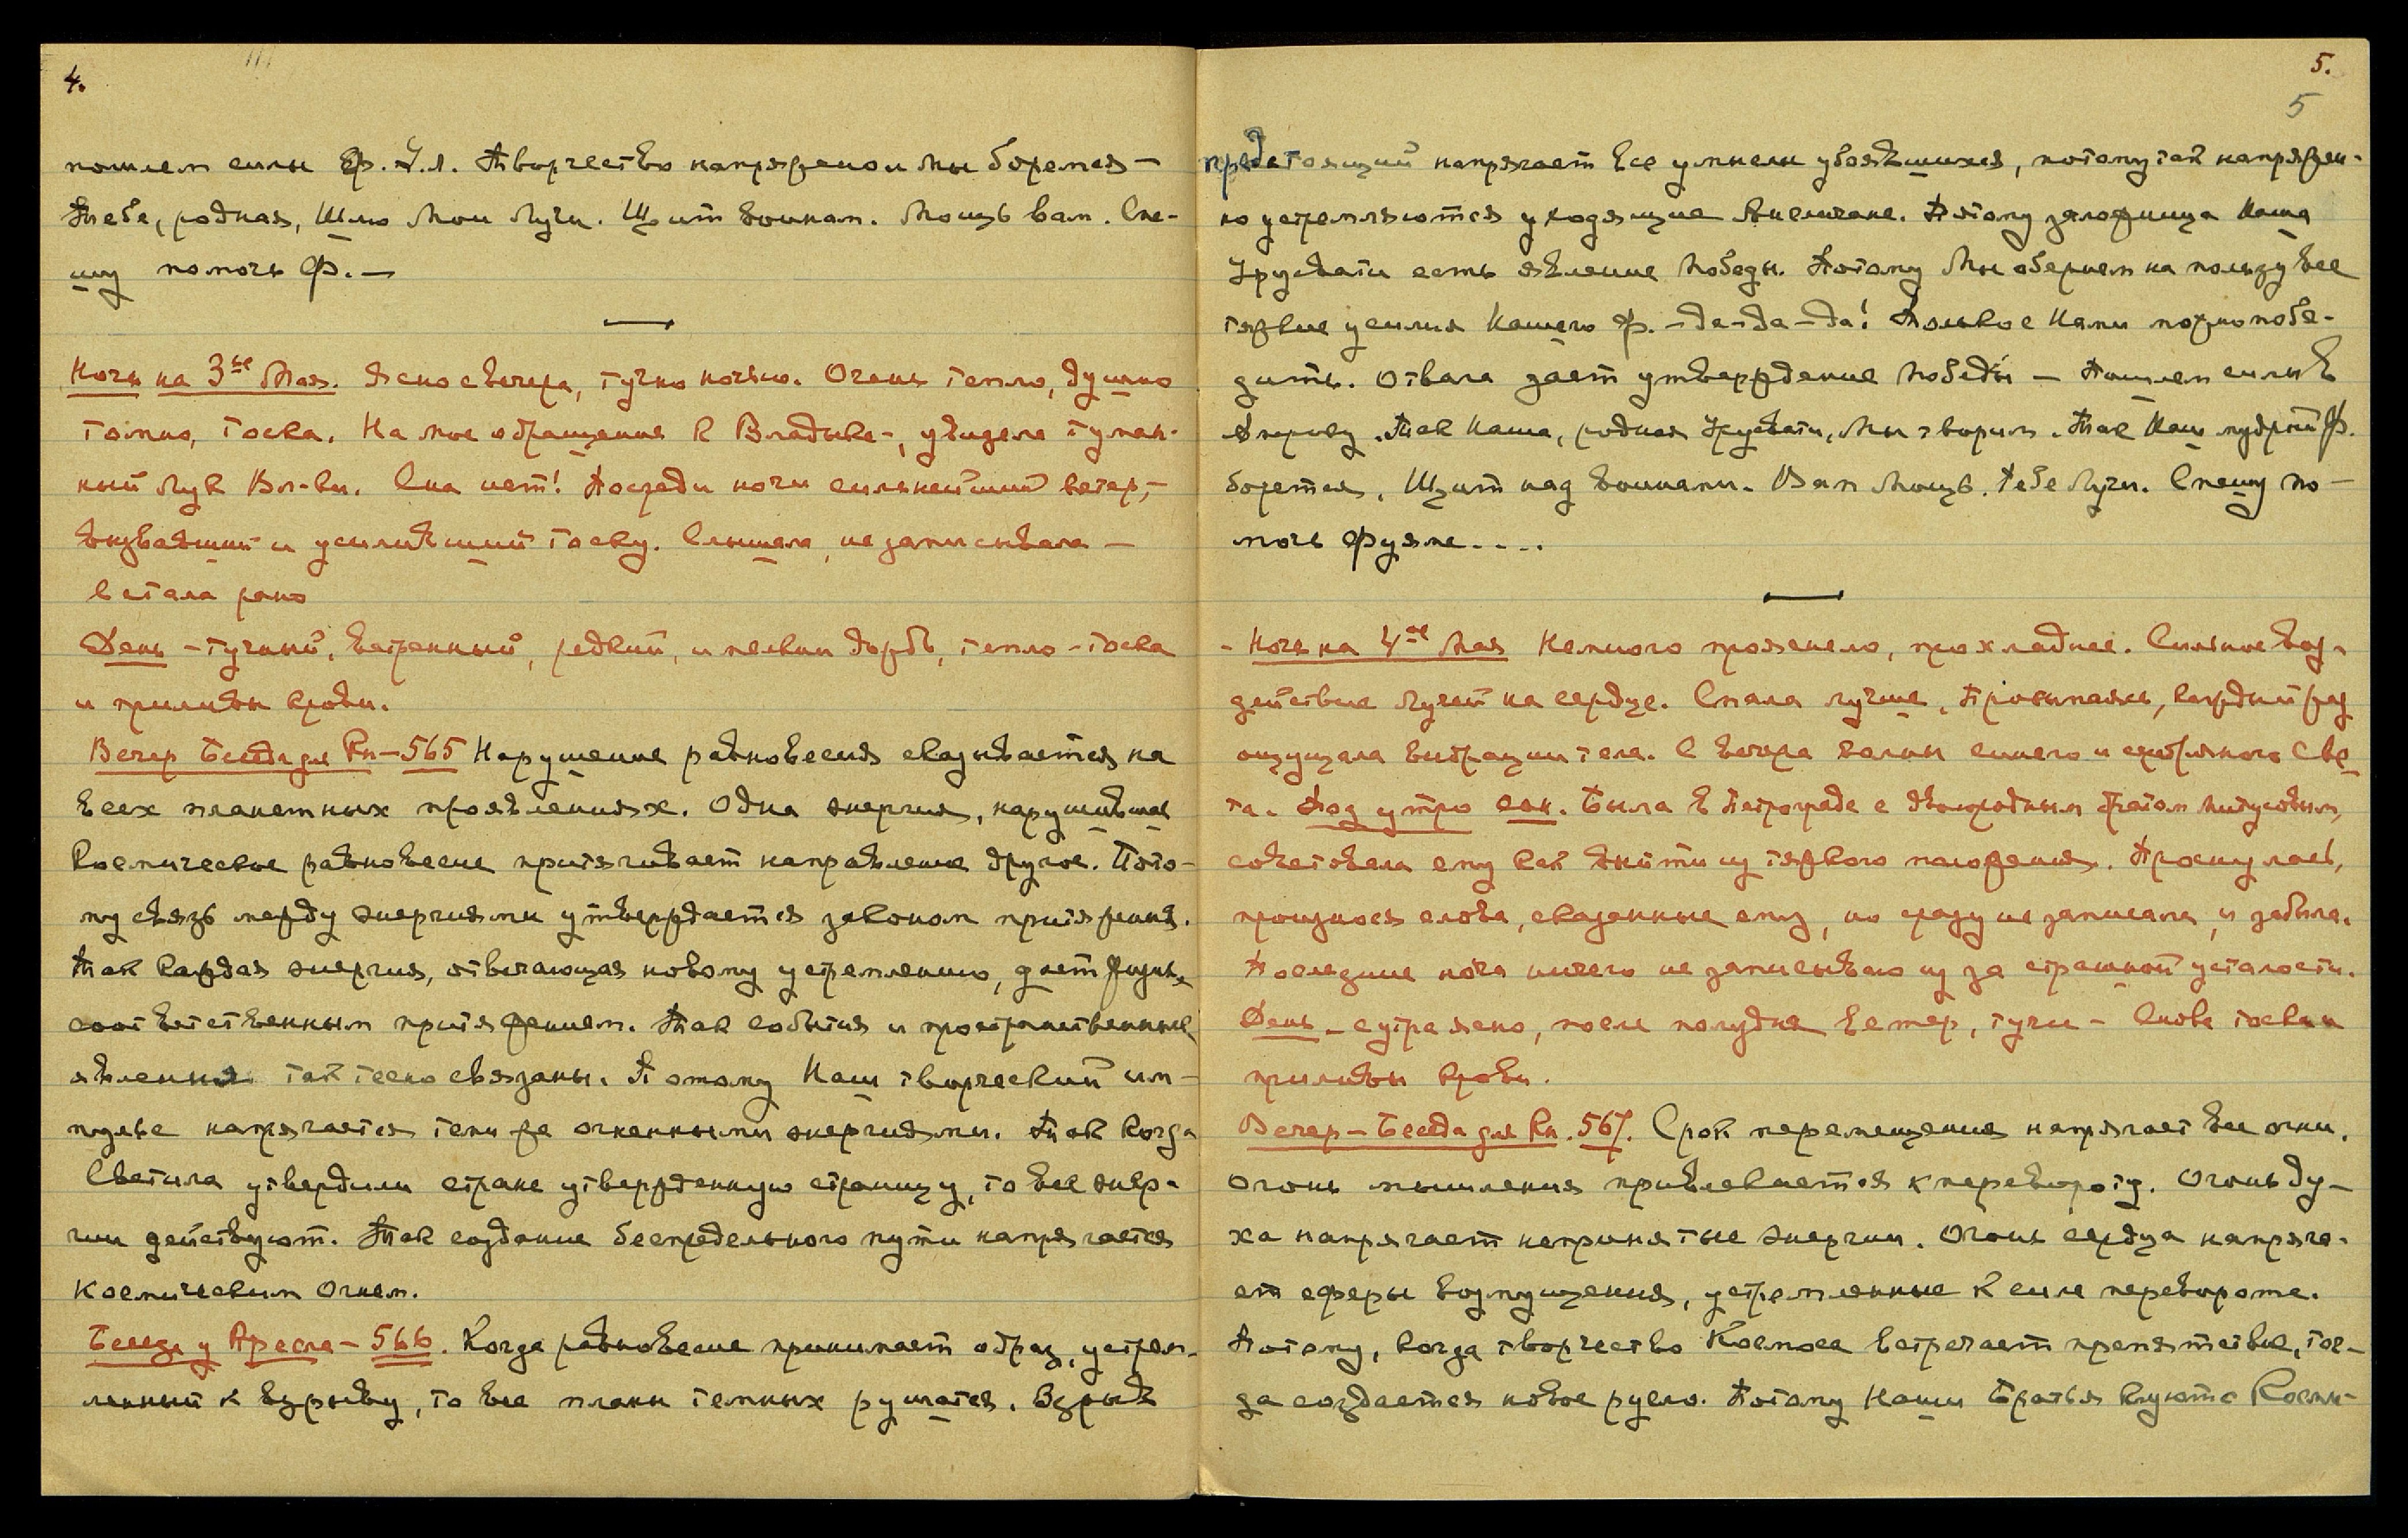 4.
пошлем силы Ф. Ул. Творчество напряжено и Мы боремся —
Тебе, родная, Шлю Мои Лучи. Щит воинам. Мощь вам. Спе-
шу помочь Ф. —
Ночь на 3ье Мая. Ясно с вечера, тучно ночью. Очень тепло, душно
томно, тоска. На мое обращение к Владыке -, увидела туман-
ный Лик Вл-ки. Сна нет! Посреди ночи сильнейший ветер, -
вызвавший и усиливший тоску. Слышала, не записывала —
встала рано
День - тучный, ветренный, редкий, и мелкий дождь, тепло - тоска
и приливы крови.
Вечер Беседа для Кн - 565 Нарушение равновесия сказывается на
всех планетных проявлениях. Одна энергия, нарушившая
Космическое равновесие притягивает направление другое. Пото-
му связь между энергиями утверждается законом притяжения.
Так каждая энергия, отвечающая новому устремлению, дает жизнь
соответственным притяжением. Так события и пространственные
явления так тесно связаны. Потому Наш творческий им-
пульс напрягается теми же огненными энергиями. Так когда
Светила утвердили стране утвержденную страницу, то все энер-
гии действуют. Так создание беспредельного пути напрягается
Космическим Огнем.
Беседа у Кресла - 566. Когда равновесие принимает образ, устрем-
ленный к взрыву, то все планы темных рушатся. Взрыв
5.
5
предстоящий напрягает все умыслы убоявшихся, потому так напряжен-
но устремляются уходящие Англичане. Потому заложница Наша
Урусвати есть явление победы. Потому Мы обернем на пользу все
тяжкие усилия Нашего Ф. - да-да-да! Только с Нами можно побе-
дить. Отвага дает утверждение победы — Пошлем силы в
Америку. Так Наша, родная Урусвати, Мы творим. Так Наш мудрый Ф.
борется. Щит над воинами. Вам Мощь. Тебе Лучи. Спешу по-
мочь Фуяме....
- Ночь на 4ое Мая Немного прояснело, прохладнее. Сильное воз-
действие Лучей на сердце. Спала лучше. Просыпаясь, каждый раз
ощущала вибрации тела. С вечера волны синего и серебряного Све-
та. Под утро сон. Была в Петрограде с двоюродным братом
советовала ему как выйти из тяжкого положения. Проснулась,
произнося слова, сказанные ему, но сразу не записала и забыла.
Последние ночи ничего не записываю из за страшной усталости.
День - с утра ясно, после полудня ветер, тучи - Снова тоска и
приливы крови.
Вечер - Беседа для Кн. 567. Срок перемещения напрягает все огни.
Огонь мышления привлекается к перевороту. Огонь ду-
ха напрягает непринятые энергии. Огонь сердца напряга-
ет сферы возмущения, устремленные к силе переворота.
Потому, когда творчество Космоса встречает препятствие, тог-
да создается новое русло. Потому Наши Братья куют с Косми-